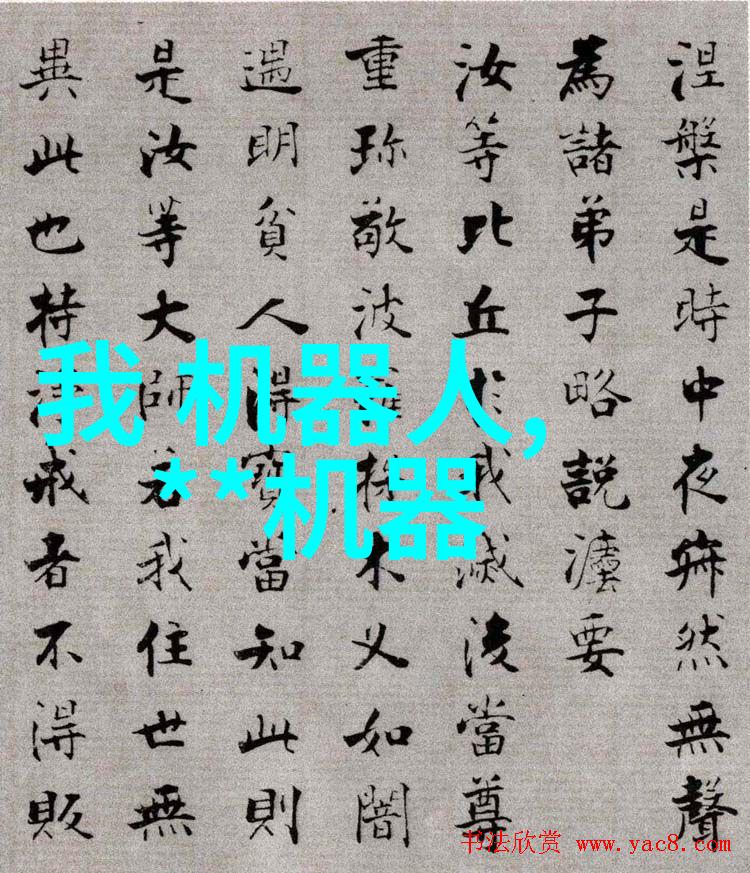 涅槃是時中夜寂然無聲
為諸弟子略説灋要
汝等比丘於我滅後當尊
重珍敬波羅提木叉如闇
遇明貧人得寶當知此則
是汝等大師若我住世無
異此也持淨戒者不得販
我 机器人,
**机器
书法欣赏 www.yac8.com